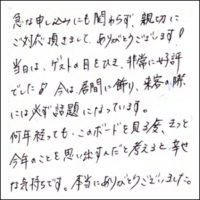 急な申し込みにも関わらず、親切に
ご対応頂きまして、ありがとうございます!
当日は、ゲストの目をひき、非常に好評
でした!今は居間に飾り、来客の際
には必ず話題になっています。
何年経っても、このボードを見る度、きっと
今年のことを思い出すんだと考えると、幸せ
な気持ちです。本当にありがとうございました。